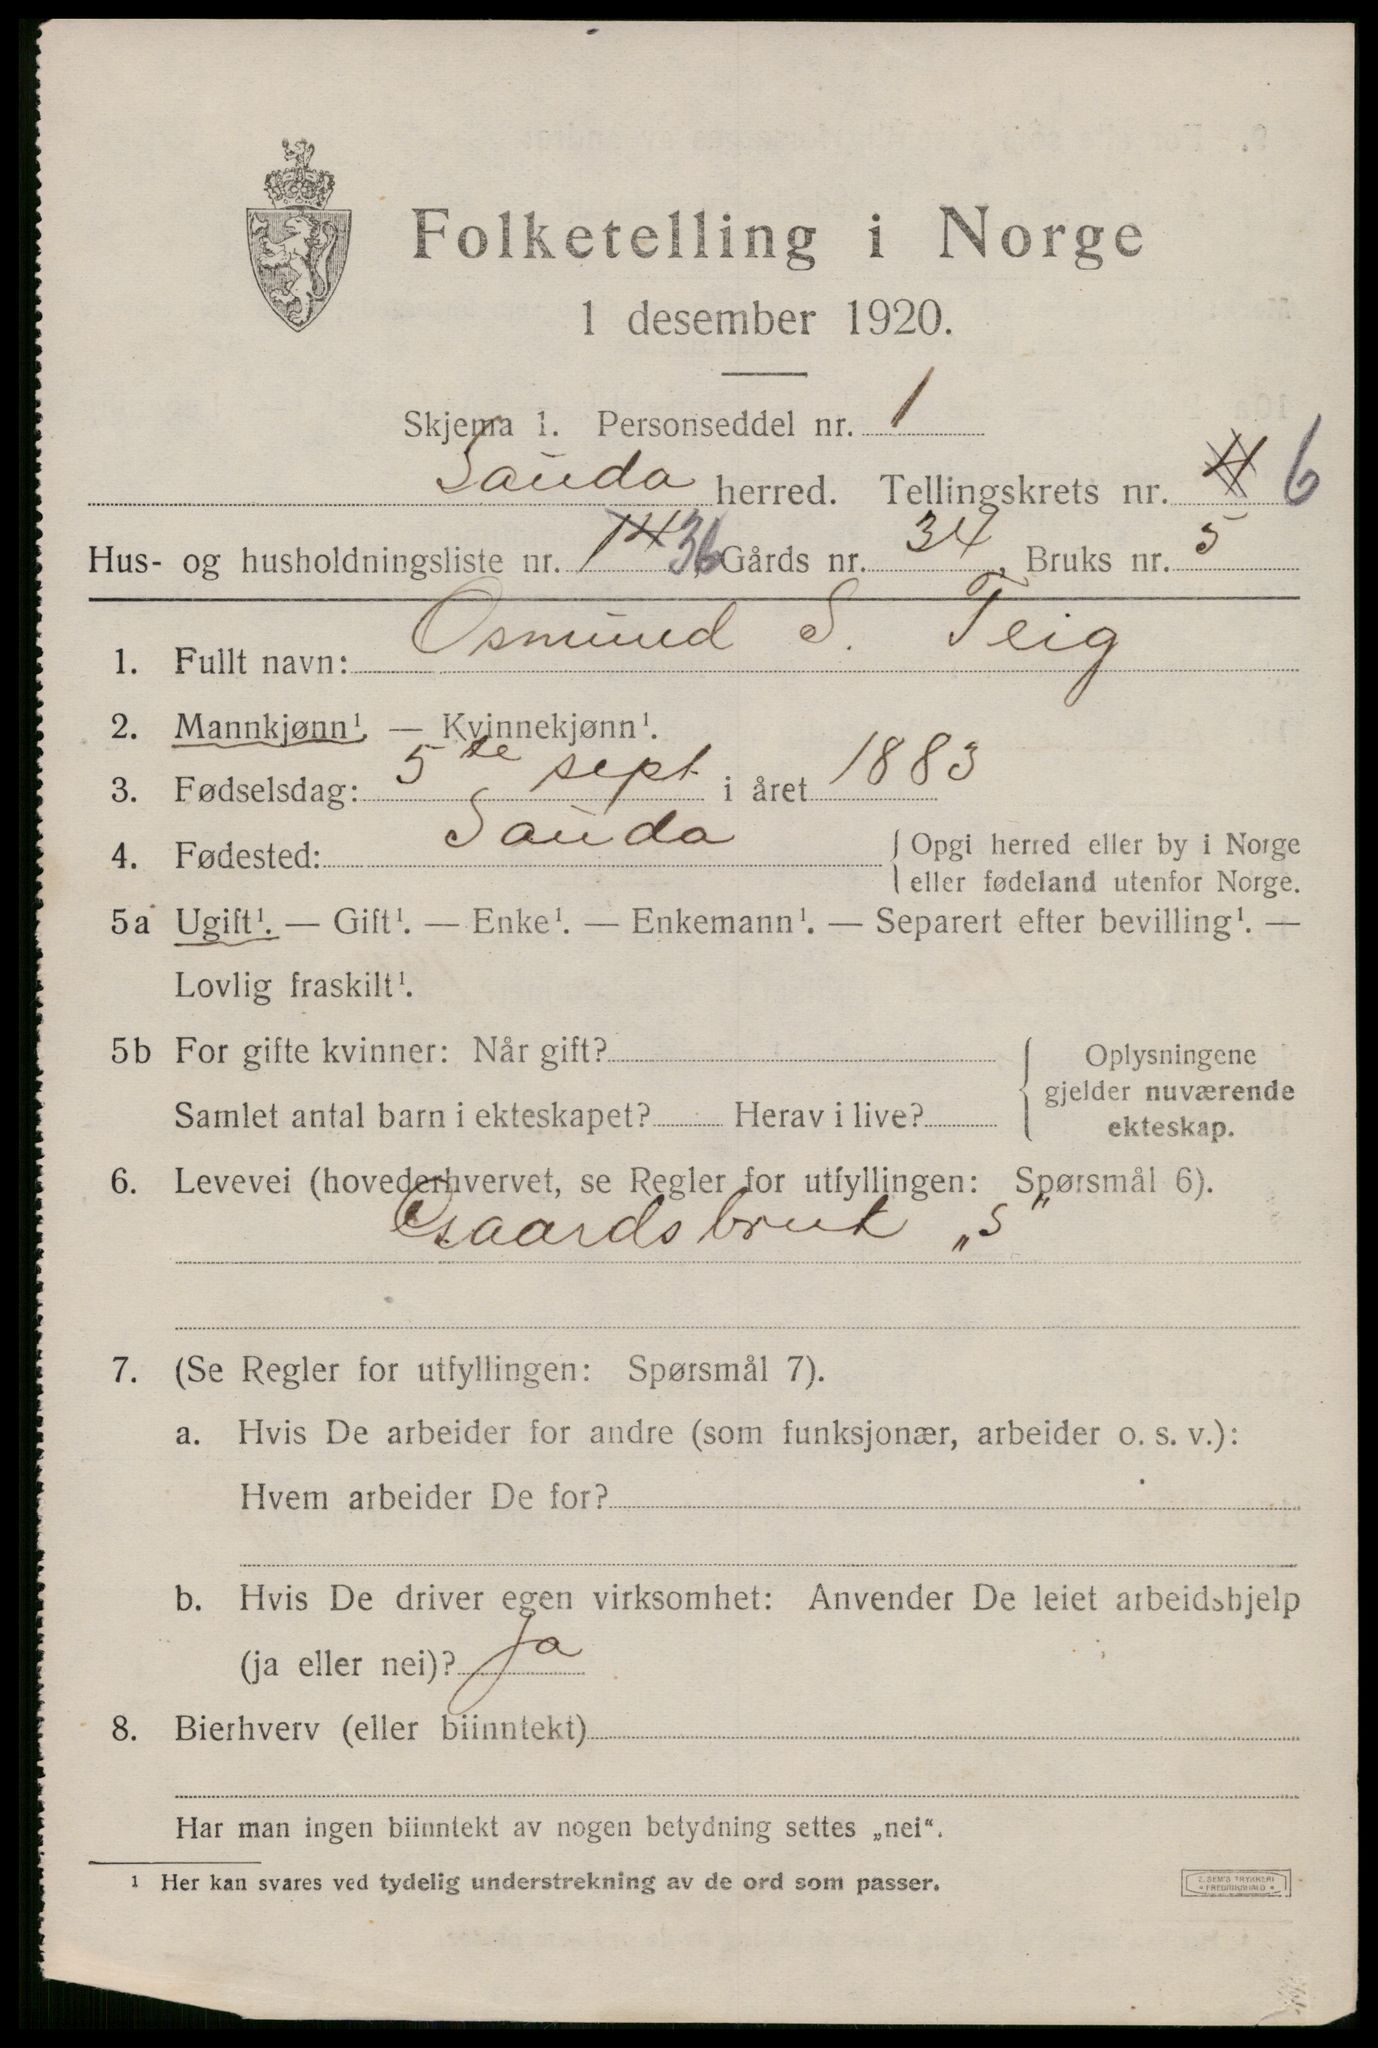 Folketelling i Norge
1 desember 1920.
Skjema 1. Personseddel nr. 1
Sauda herred. Tellingskrets nr. 6
Hus- og husholdningsliste nr. 14 36, Gårds nr. 34, Bruks nr. 5
1. Fullt navn: Osmund S. Teig
2. Mannkjønn¹. — Kvinnekjønn¹.
3. Fødselsdag: 5te sept i året 1883
4. Fødested: Sauda { Opgi herred eller by i Norge
eller fødeland utenfor Norge.
5a Ugift¹. — Gift¹. — Enke¹. — Enkemann¹. — Separert efter bevilling¹. —
Lovlig fraskilt¹.
5b For gifte kvinner: Når gift?
Samlet antal barn i ekteskapet? Herav i live?
{ Oplysningene
gjelder nuværende
ekteskap.
6. Levevei (hovederhvervet, se Regler for utfyllingen: Spørsmål 6).
Gaardsbruk „S"
7. (Se Regler for utfyllingen: Spørsmål 7).
a. Hvis De arbeider for andre (som funksjonær, arbeider o. s. v.):
Hvem arbeider De for?
b. Hvis De driver egen virksomhet: Anvender De leiet arbeidshjelp
(ja eller nei)? Ja
8. Bierhverv (eller biinntekt)
Har man ingen biinntekt av nogen betydning settes „nei“.
¹ Her kan svares ved tydelig understrekning av de ord som passer.
E. SEM'S TRYKKERI
* FREDRIKSHALD *